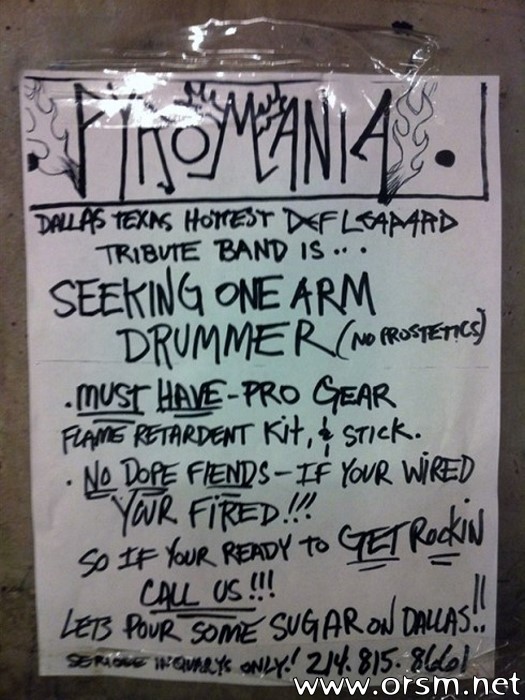 PYROMANIA.
DALLAS TEXAS HOTTEST DEF LEAPARD
TRIBUTE BAND IS...
SEEKING ONE ARM
DRUMMER (NO PROSTETICS)
. MUST HAVE - PRO GEAR
FLAME RETARDENT KIT, & STICK.
. NO DOPE FIENDS - IF YOUR WIRED
YOUR FIRED!!!
SO IF YOUR READY TO GET ROCKIN
CALL US!!!
LETS POUR SOME SUGAR ON DALLAS!!
SERIOUS INQUARYS ONLY! 214.815.8661
www.orsm.net